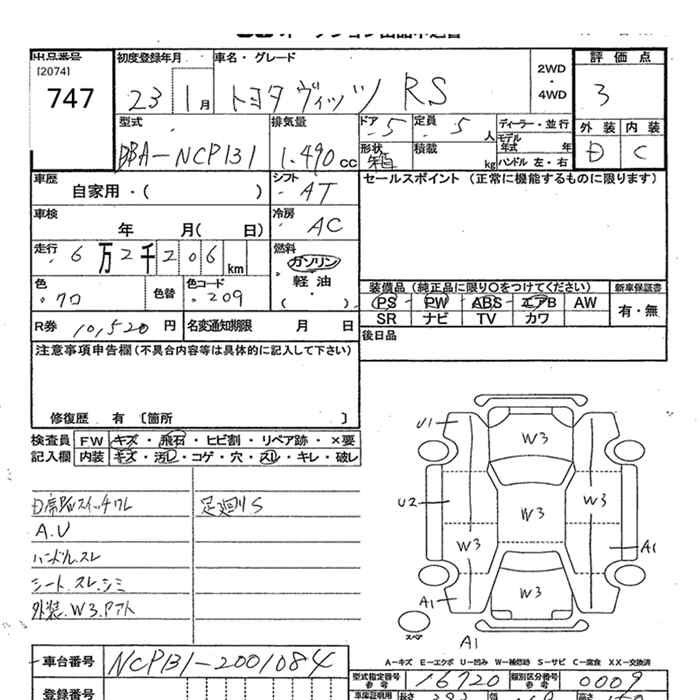 出品番号
[2074]
747
初度登録年月
23 1月
車名・グレード
トヨタ ヴィッツ RS
2WD
・
4WD
評価点
3
外装 内装
D C
型式
DBA-NCP131
排気量
1.490 cc
ドア
5
定員
5 人
形状
箱
積載
kg
ディーラー・並行
モデル年式 年
ハンドル 左・右
車歴
自家用・( )
シフト
AT
車検
年 月( 日)
冷房
AC
走行
6万2千206km
燃料
ガソリン
軽油
・
( )
色
クロ
色替
色コード
209
R券 10,520円
名変通知期限 月 日
セールスポイント(正常に機能するものに限ります)
装備品(純正品に限り○をつけてください)
新車保証書
PS PW ABS エアB AW
有・無
SR ナビ TV カワ
後日品
注意事項申告欄(不具合内容等は具体的に記入して下さい)
修復歴 有 〔箇所 〕
検査員記入欄
FW キズ・飛石・ヒビ割・リペア跡・×要
内装 キズ・汚レ・コゲ・穴・スレ・キレ・破レ
足廻りS
A.U
ハンドル.スレ
シート.スレ.シミ
外装.W3.
U1
W3
U2
W3
W3
W3
A1
A1
W3
スペア
A1
A-キズ E-エクボ U-凹み W-補修跡 S-サビ C-腐食 XX-交換済
車台番号
NCP131-2001084
型式指定番号
参考
16720
類別区分番号
参考
0009
登録番号
車庫証明用
長さ